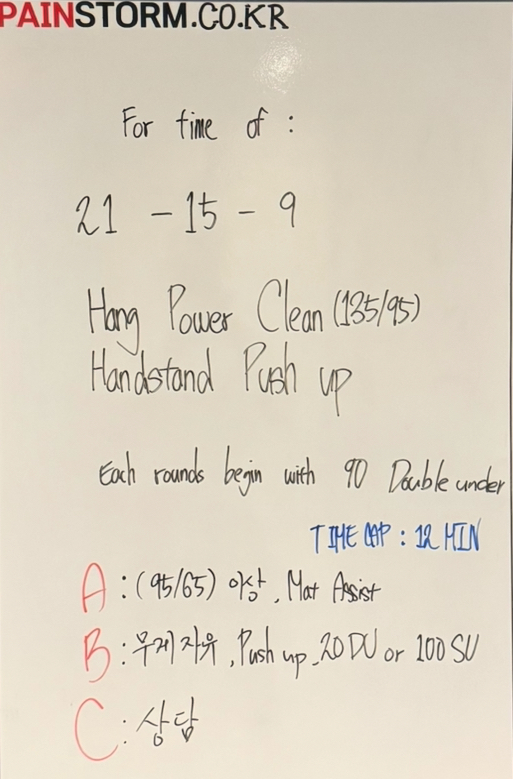 PAINSTORM.CO.KR
For time of :
21 - 15 - 9
Hang Power Clean (135/95)
Handstand Push up
Each rounds begin with 90 Double under
TIME CAP : 12 MIN
A : (95/65) 이상, Mat Assist
B : 무게 자유, Push up, 20 DU or 100 SU
C : 상담